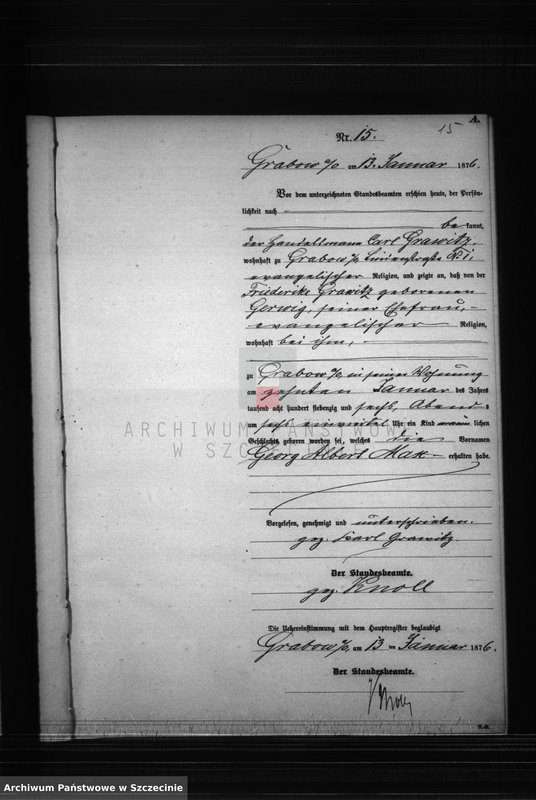 A.
15
Nr. 15.
Grabow a/O am 13. Januar 1876.
Vor dem unterzeichneten Standesbeamten erschien heute, der Persön-
lichkeit nach
be kannt,
der Handelsmann Carl Grawitz,
wohnhaft zu Grabow a/O
evangelischer Religion, und zeigte an, daß von der
Friederike Grawitz geborenen
Gerwig, seiner Ehefrau,
evangelischer Religion,
wohnhaft bei ihm,
zu Grabow a/O, in seiner Wohnung
am zehnten Januar des Jahres
tausend acht hundert siebenzig und sechs, Abends
um sechs einviertel Uhr ein Kind männlichen
Geschlechts geboren worden sei, welches die Vornamen
Georg Albert Max erhalten habe.
Vorgelesen, genehmigt und unterschrieben.
gez. Karl Grawitz.
Der Standesbeamte.
gez. Knoll
Die Uebereinstimmung mit dem Hauptregister beglaubigt
Grabow a/O, am 13 ten Januar 1876.
Der Standesbeamte.
Knoll
ARCHIWUM PAŃSTWOWE
W SZCZECINIE
Archiwum Państwowe w Szczecinie